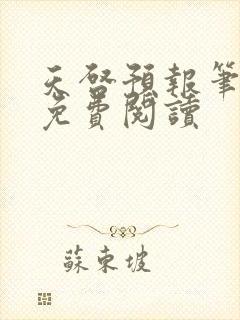 天啓預報筆
免費閱讀
蘇東坡